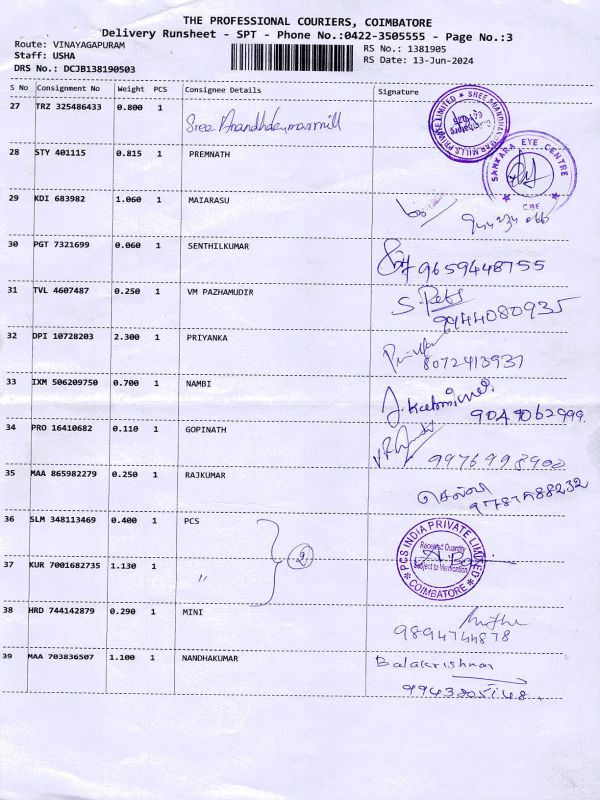 THE PROFESSIONAL COURIERS, COIMBATORE
Delivery Runsheet - SPT - Phone No.:0422-3505555 - Page No.:3
Route: VINAYAGAPURAM
Staff: USHA
DRS No.: DCJB138190503
RS No.: 1381905
RS Date: 13-Jun-2024
S No Consignment No Weight PCS Consignee Details Signature
27 TRZ 325486433 0.800 1 Sree Anandhakumar mill
28 STY 401115 0.815 1 PREMNATH
SANKARA EYE CENTRE
CBE
29 KDI 683982 1.060 1 MAIARASU
30 PGT 7321699 0.060 1 SENTHILKUMAR
9659448755
31 TVL 4607487 0.250 1 VM PAZHAMUDIR
9944080935
32 DPI 10728203 2.300 1 PRIYANKA
8072413937
33 IXM 506209750 0.700 1 NAMBI
9047062999
34 PRO 16410682 0.110 1 GOPINATH
9976998900
35 MAA 865982279 0.250 1 RAJKUMAR
செல்வி
36 SLM 348113469 0.400 1 PCS
PCS INDIA PRIVATE LIMITED
Received Quantity
Subject to Verification
COIMBATORE
37 KUR 7001682735 1.130 1 〃 2
38 HRD 744142879 0.290 1 MINI
9894744878
39 MAA 703836507 1.100 1 NANDHAKUMAR Balakrishnan